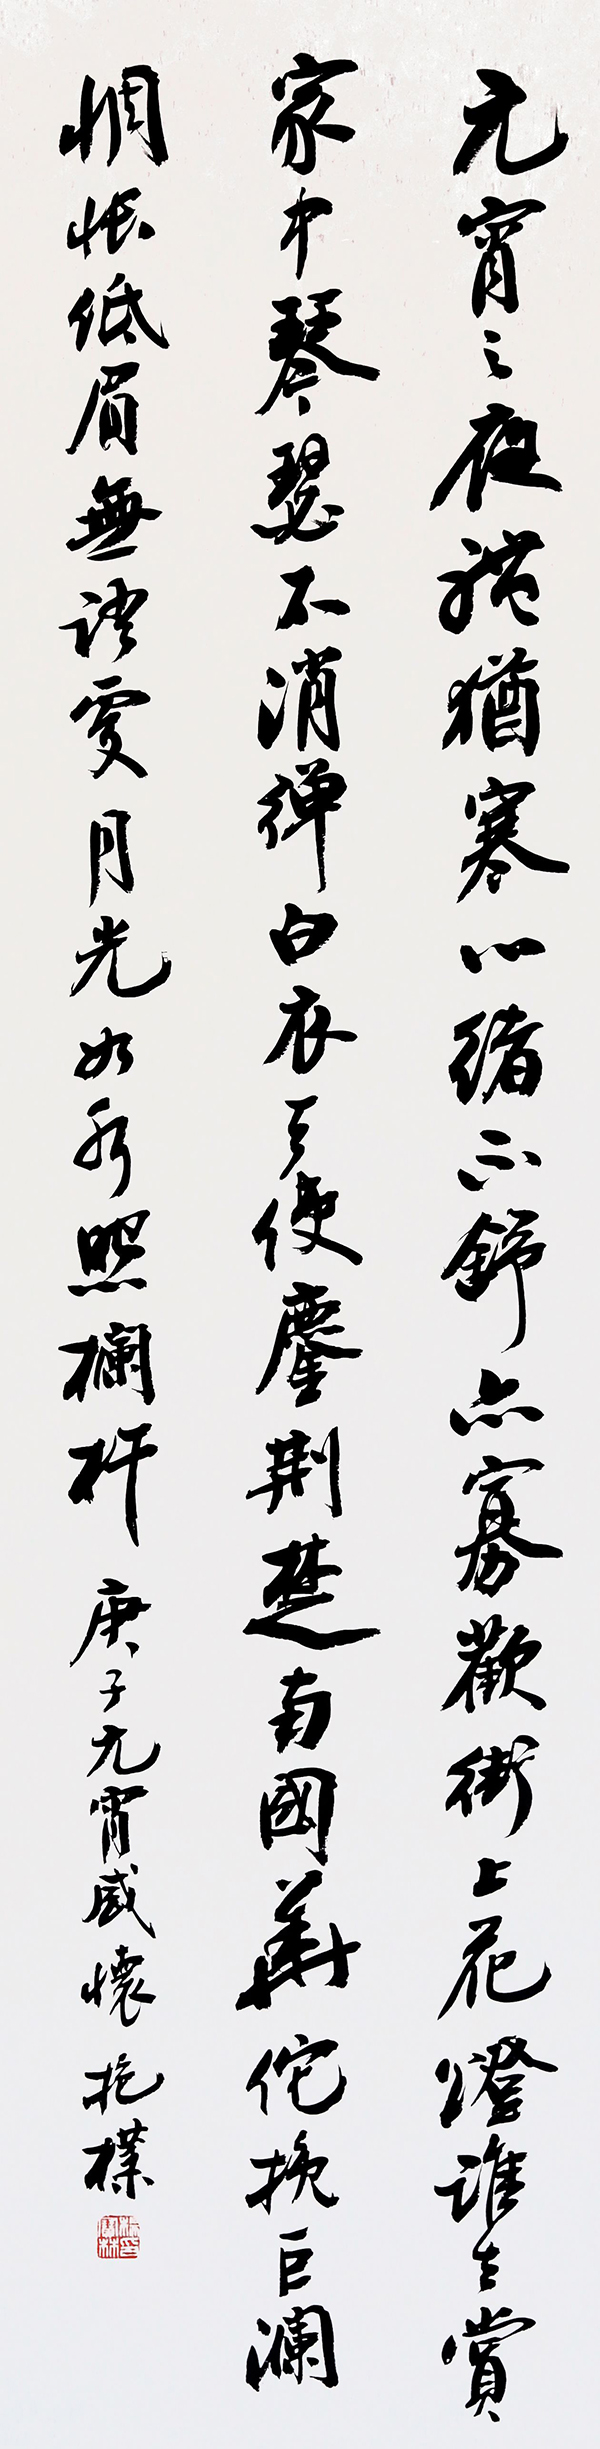 元宵之夜體猶寒心緒不舒亦寡歡街上花燈誰去賞
家中琴瑟不消彈白衣天使鏖荆楚南國華佗挽巨瀾
惆悵低眉無語處月光如水照欄杆 庚子元宵感懷 抱樸